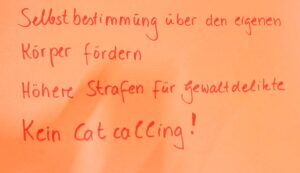 Selbstbestimmung über den eigenen
Körper fördern
Höhere Strafen für gewaltdelikte
Kein Catcalling!